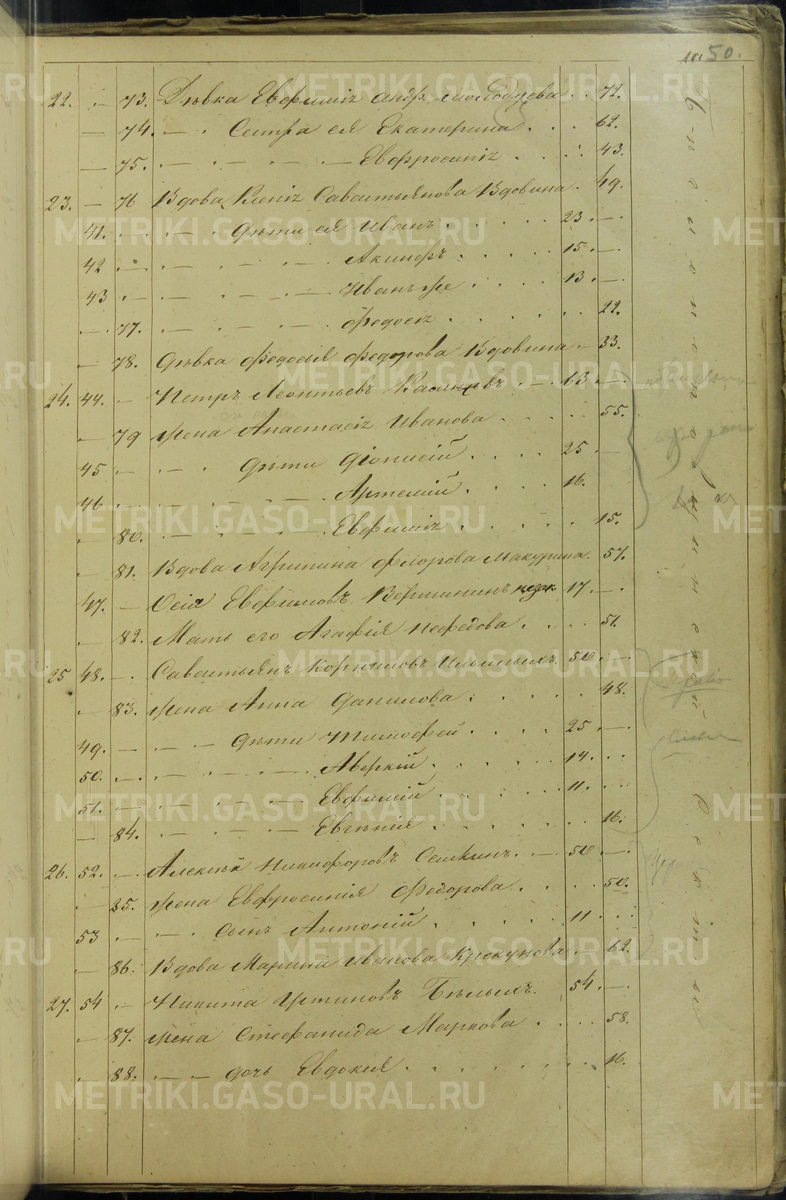 50.
22. 73. Дѣвка Евфиміѣ Андр. 72.
74. Сестра ея Екатерина 62.
75. Евфросиніѣ 43.
23. 76 Вдова Ксеніѣ Савастьянова Вдовина 49.
41. Дѣти ея Иванъ 23
42 Акинфъ 15
43 Иванъ же 13
77. Федосѣ 22.
78. Дѣвка Федосья Федорова Вдовина 33.
24. 44. Петръ Леонтьевъ 63
79 жена Анастасіѣ Иванова 55.
45 Дѣти Діонисій 25
46 Артемій 16.
80. Евфиміѣ 15.
81. Вдова Агрипина Флорова Макурина 57.
47. Осія Евфимовъ Вершининъ 17.
82. Мать его Агафія Нефедова 51.
25 48. Савастьянъ Корниловъ 50
83. жена Анна Данилова 48.
49. Дѣти Тимофей 25
50. Аверкій 14
51. Евфимій 11.
84. Евгѣнія 16.
26. 52. Алексѣй Никифоровъ Семкинъ 50
85. жена Евфросинія Федорова 50.
53 Сынъ Антоній 11
86. Вдова Марина Иванова Крекунова 62.
27. 54 Никита Устиновъ Бѣлыхъ 54
87. жена Стефанида Маркова 58.
88. дочь Евдокія 16.
METRIKI.GASO-URAL.RU